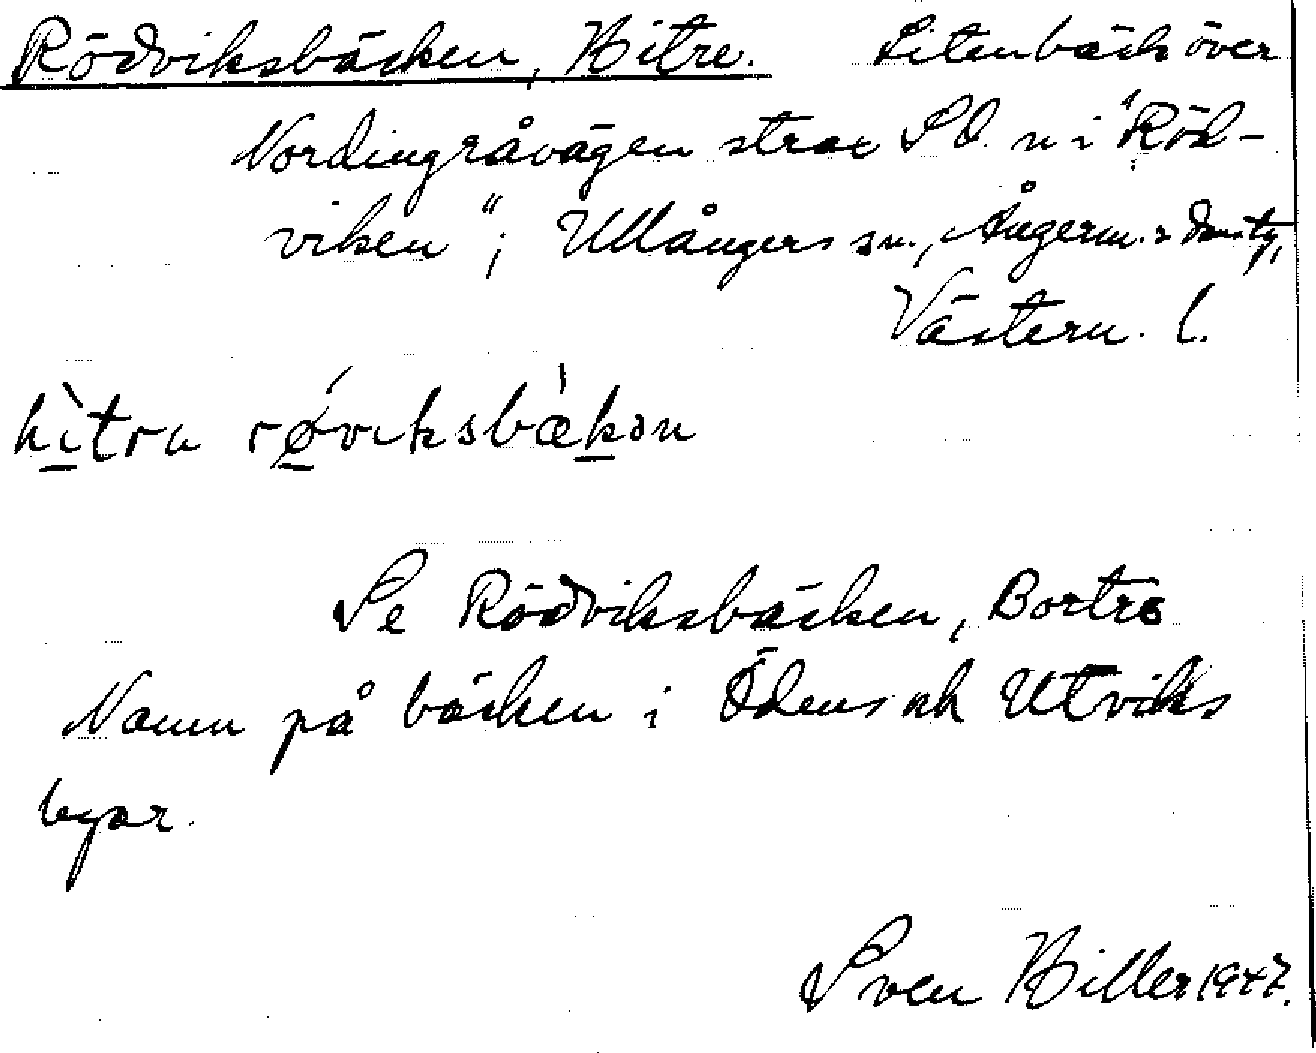 Rödviksbäcken, Hitre. Liten bäck över
Nordingråvägen strax SO. n i "Röd-
viken"; Ullångers sn., Ångerm.s
Västern. l.
hìtrɩ røvɩksbækən
Se Rödviksbäcken, Bortre
Namn på bäcken i Ödens och Utviks
byar.
Sven Hiller 1947.